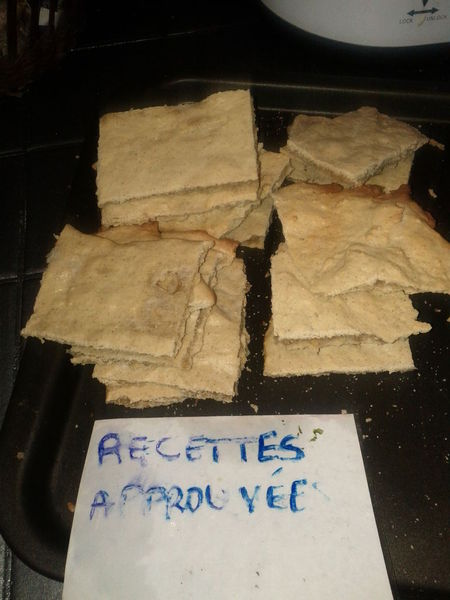 LOCK UNLOCK
RECETTES
APPROUVÉE